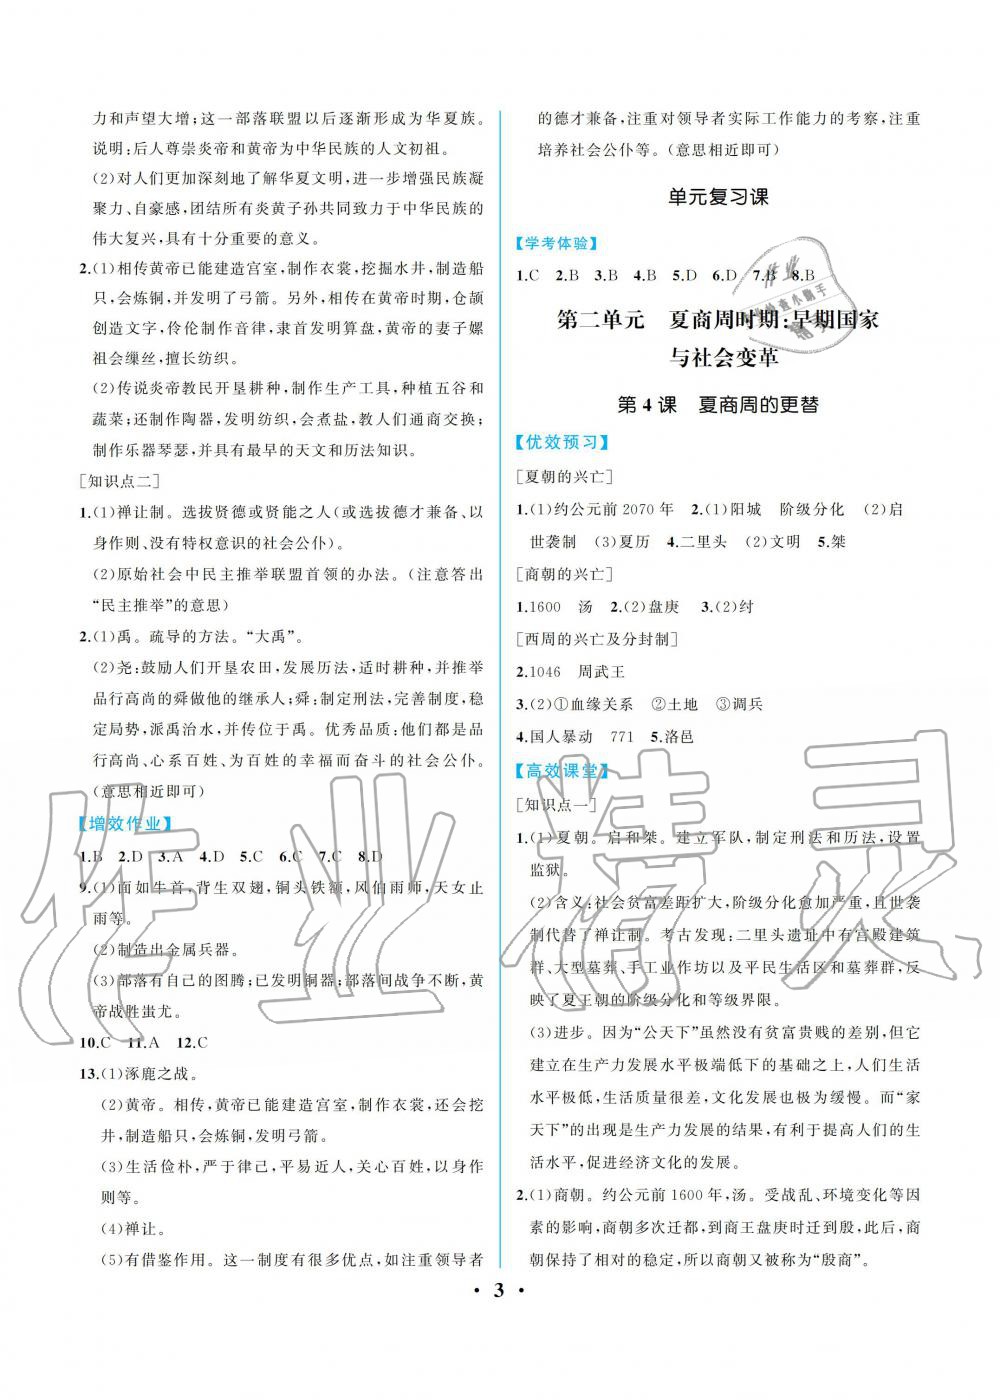 力和声望大增;这一部落联盟以后逐渐形成为华夏族。
说明:后人尊崇炎帝和黄帝为中华民族的人文初祖。
(2)对人们更加深刻地了解华夏文明,进一步增强民族凝
聚力、自豪感,团结所有炎黄子孙共同致力于中华民族的
伟大复兴,具有十分重要的意义。
2.(1)相传黄帝已能建造宫室,制作衣裳,挖掘水井,制造船
只,会炼铜,并发明了弓箭。另外,相传在黄帝时期,仓颉
创造文字,伶伦制作音律,隶首发明算盘,黄帝的妻子嫘
祖会缫丝,擅长纺织。
(2)传说炎帝教民开垦耕种,制作生产工具,种植五谷和
蔬菜;还制作陶器,发明纺织,会煮盐,教人们通商交换;
制作乐器琴瑟,并具有最早的天文和历法知识。
[知识点二]
1.(1)禅让制。选拔贤德或贤能之人(或选拔德才兼备、以
身作则、没有特权意识的社会公仆)。
(2)原始社会中民主推举联盟首领的办法。(注意答出
“民主推举”的意思)
2.(1)禹。疏导的方法。“大禹”。
(2)尧:鼓励人们开垦农田,发展历法,适时耕种,并推举
品行高尚的舜做他的继承人;舜:制定刑法,完善制度,稳
定局势,派禹治水,并传位于禹。优秀品质:他们都是品
行高尚、心系百姓、为百姓的幸福而奋斗的社会公仆。
(意思相近即可)
【增效作业】
1.B 2.D 3.A 4.D 5.C 6.C 7.C 8.D
9.(1)面如牛首,背生双翅,铜头铁额,风伯雨师,天女止
雨等。
(2)制造出金属兵器。
(3)部落有自己的图腾;已发明铜器;部落间战争不断,黄
帝战胜蚩尤。
10.C 11.A 12.C
13.(1)涿鹿之战。
(2)黄帝。相传,黄帝已能建造宫室,制作衣裳,还会挖
井,制造船只,会炼铜,发明弓箭。
(3)生活俭朴,严于律己,平易近人,关心百姓,以身作
则等。
(4)禅让。
(5)有借鉴作用。这一制度有很多优点,如注重领导者
的德才兼备,注重对领导者实际工作能力的考察,注重
培养社会公仆等。(意思相近即可)
单元复习课
【学考体验】
1.C 2.B 3.B 4.B 5.D 6.D 7.B 8.B
第二单元 夏商周时期:早期国家
与社会变革
第4课 夏商周的更替
【优效预习】
[夏朝的兴亡]
1.(1)约公元前2070年 2.(1)阳城 阶级分化 (2)启
世袭制 (3)夏历 4.二里头 (2)文明 5.桀
[商朝的兴亡]
1.1600 汤 2.(2)盘庚 3.(2)纣
[西周的兴亡及分封制]
2.1046 周武王
3.(2)①血缘关系 ②土地 ③调兵
4.国人暴动 771 5.洛邑
【高效课堂】
[知识点一]
1.(1)夏朝。启和桀。建立军队,制定刑法和历法,设置
监狱。
(2)含义:社会贫富差距扩大,阶级分化愈加严重,且世袭
制代替了禅让制。考古发现:二里头遗址中有宫殿建筑
群、大型墓葬、手工业作坊以及平民生活区和墓葬群,反
映了夏王朝的阶级分化和等级界限。
(3)进步。因为“公天下”虽然没有贫富贵贱的差别,但它
建立在生产力发展水平极端低下的基础之上,人们生活
水平极低,生活质量很差,文化发展也极为缓慢。而“家
天下”的出现是生产力发展的结果,有利于提高人们的生
活水平,促进经济文化的发展。
2.(1)商朝。约公元前1600年,汤。受战乱、环境变化等因
素的影响,商朝多次迁都,到商王盘庚时迁到殷,此后,商
朝保持了相对的稳定,所以商朝又被称为“殷商”。
· 3 ·
作业精灵